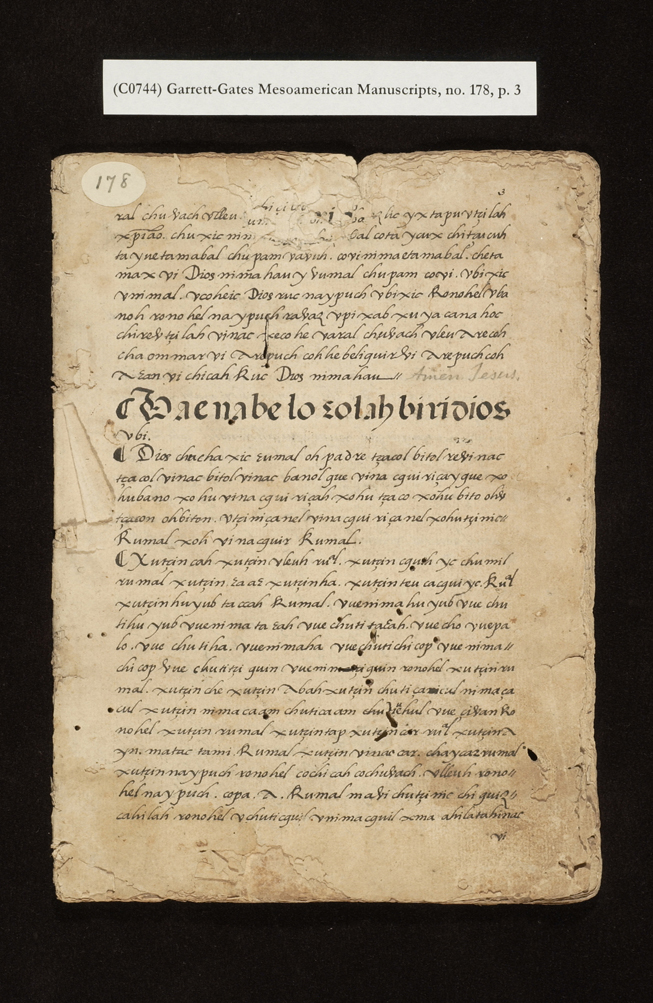 (C0744) Garrett-Gates Mesoamerican Manuscripts, no. 178, p. 3
178
3
ral chu vach vlleu lic yxtapu vtzilah
xpião. chu xic nim bal cota ycux chitzucuh
ta yvetamabal chupam vavuh. covi nimaetamabal. cheta
max vi Dios nimahau y vumal chupam covi. vbixic
vnimal. vcoheic Dios ruc naypuch vbixic Ronohel vba
noh ronohel naypuch ravaz vpixab xuyacana hoc
chirevtzilah vinac xecohe varal chuvach vleu Arecoh
cha ommar vi Arepuch cohlhe beliquir vi Arepuch coh
Aɛan vi chicah Ruc Dios nimahau Amen Jesus.
Vae nabe loɛolah biridios
vbi.
Dios chucha xic ɛumal oh padre tzacol bitol revinac
tzacol vinac bitol vinac banol que vina cqui riçay que xo
hubano xohu vina cqui riçah xohu tzaco xohu bito ohv
tzacon ohbiton. vtzi niçanel vinacqui riçanel xohutzinic
Rumal xoh vinacquir Rumal.
Xutzin cah xutzin vleuh rul. xutzin cquih yc chumil
rumal xutzin. ɛaaɛ xutzinha. xutzin teu cacqui yc. Rul
xutzin huyub taccah Rumal. vue nima huyub vue chu
tihu yub vue nima taɛah vue chuti taɛah. vue cho vue pa
lo. vue chutiha. vue nimaha vue chuti chicop vue nima
chicop vue chutitzi quin vue nimatziquin ronohel xutzin ru
mal. xutzin che xutzin Abah xutzin chuti çamcul nimaça
cul xutzin nimacaam chuticaam vue çivan Ro
nohel xutzin rumal xutzin tap xutzin car rul xutzin A
yn. matac tami. Rumal xutzin vinac car. chaycaz rumal
xutzin naypuch ronohel cochicah cochuvach. vlleuh rono
hel naypuch. copa. A. Rumal mavi chutzinic chi quiz
cahilah ronohel vchuticquil vnimacquil xma ahilatahinac
vi